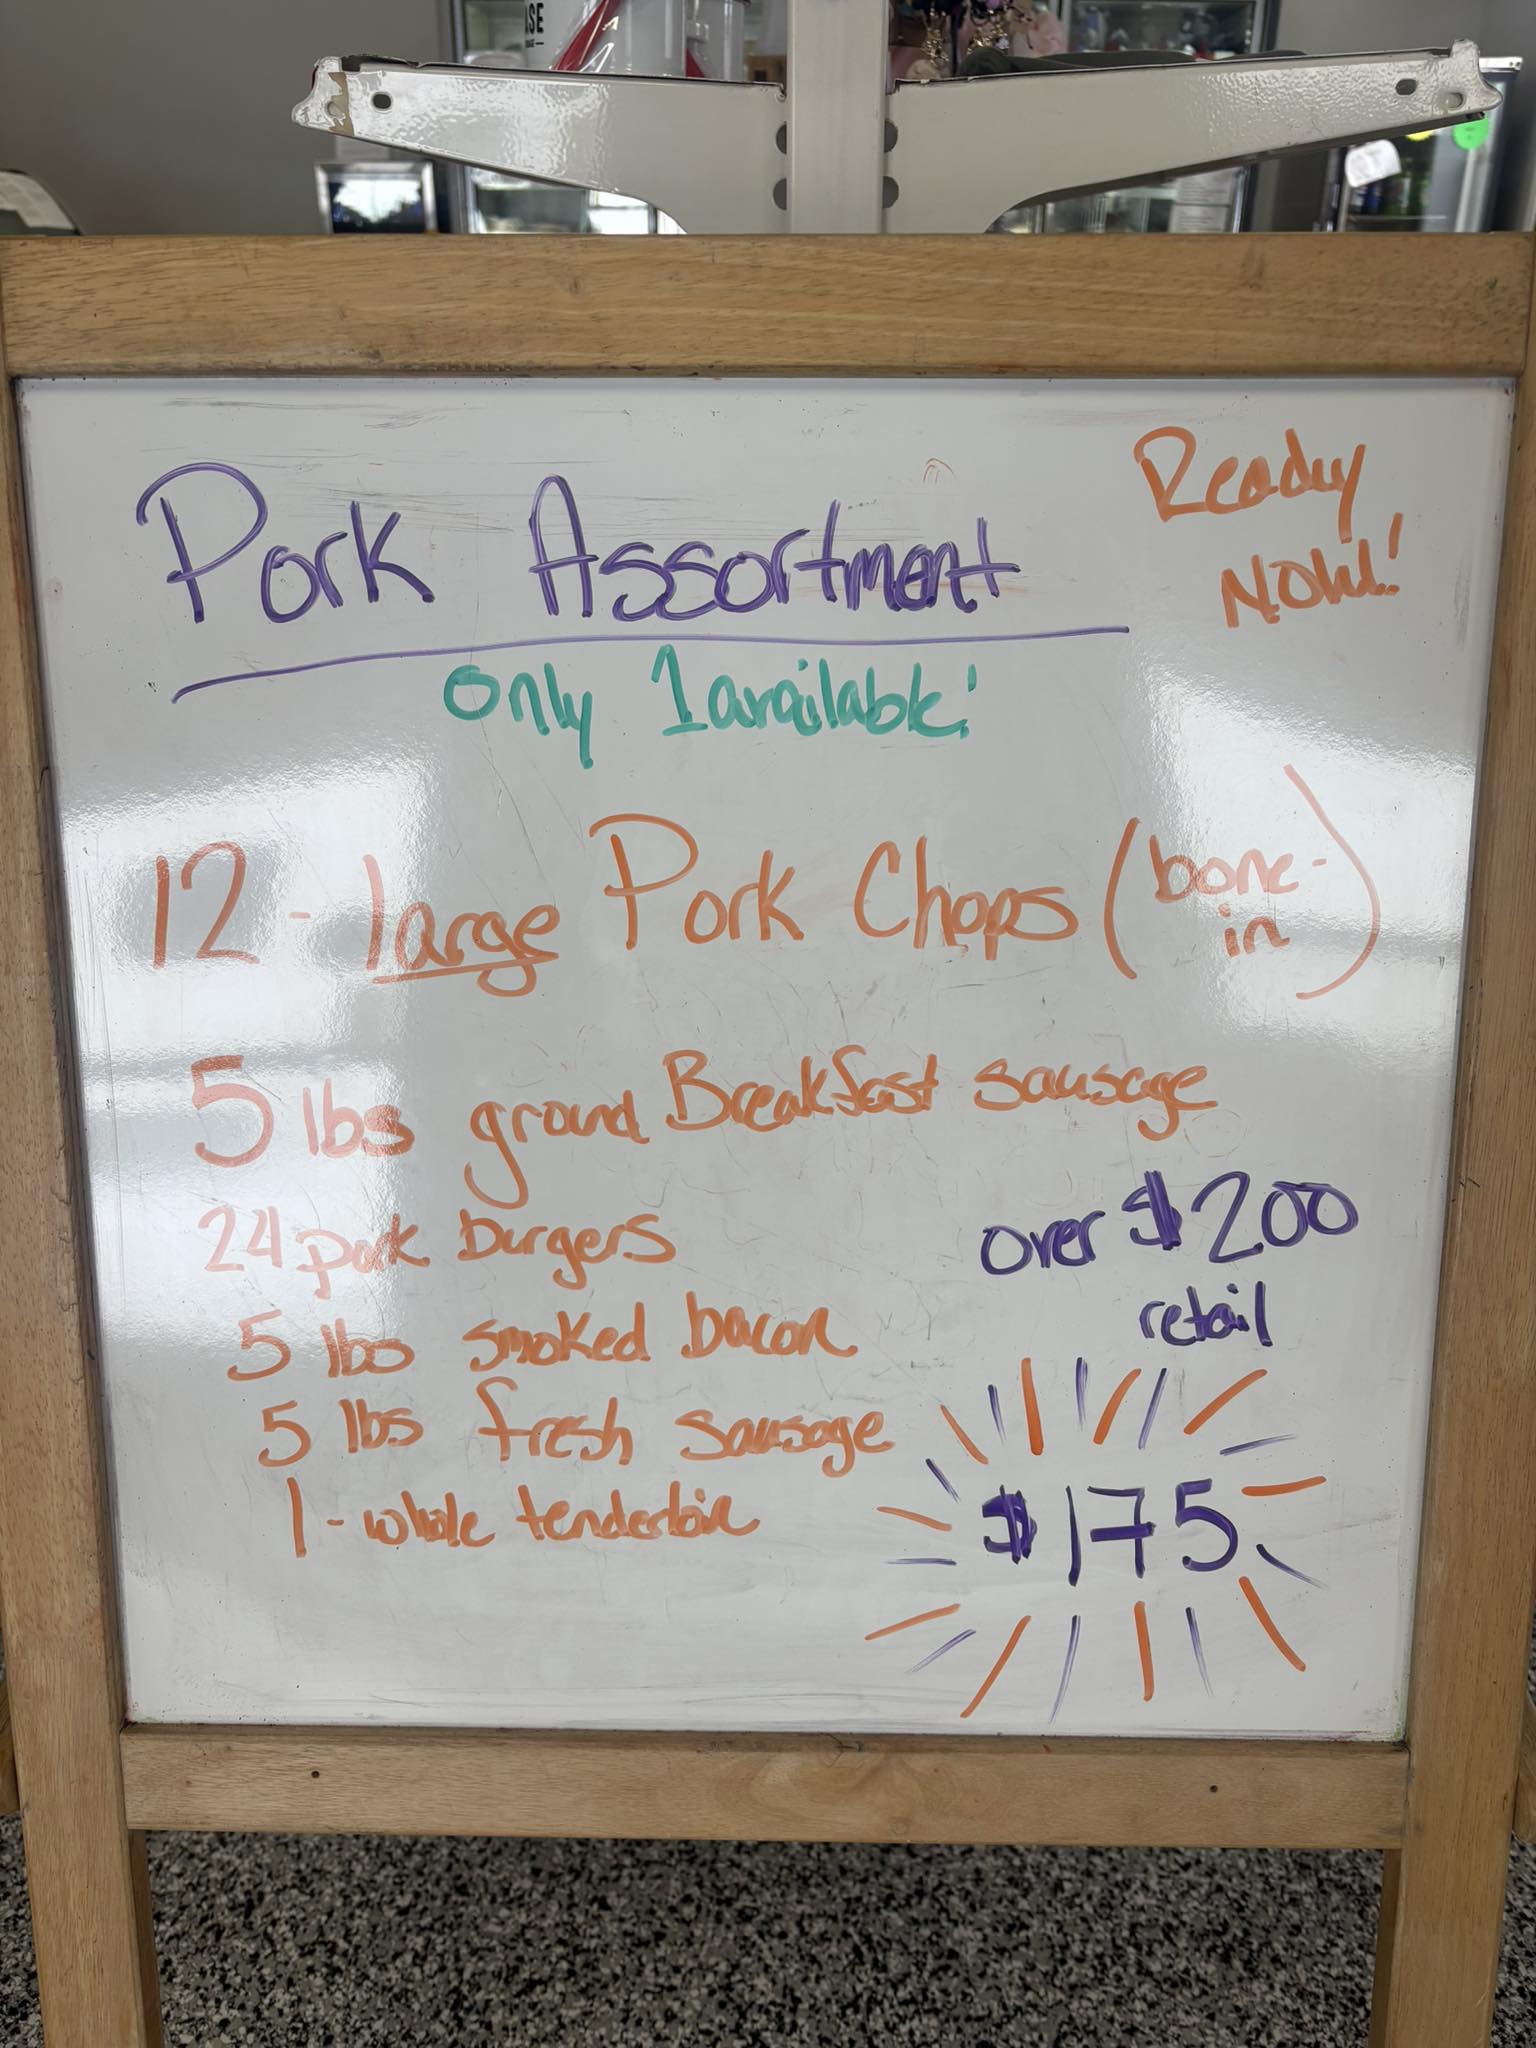 ASE
Pork Assortment
Ready
Now!
only 1 available!
12 - large Pork Chops (bone-
in)
5 lbs ground Breakfast sausage
24 pork burgers
over $200
retail
5 lbs smoked bacon
5 lbs fresh sausage
1 - whole tenderloin
$175